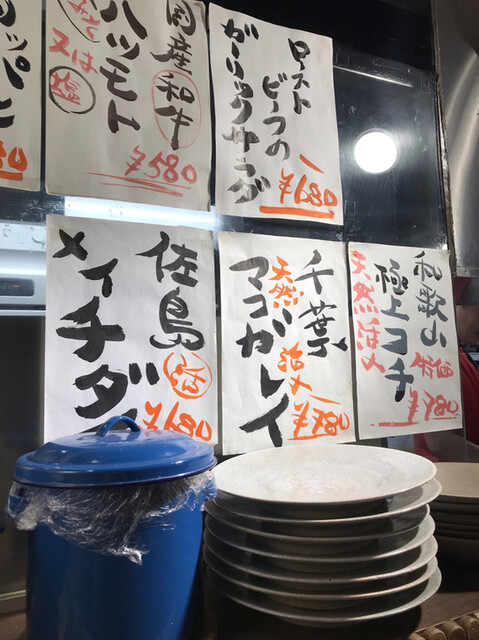 国産
和牛
ハツモト
みそ
又は
塩
¥580
ロースト
ビーフの
ガーリックサラダ
¥680
佐島
活
メイチダイ
¥680
千葉
天然
マコガレイ
活〆
¥780
和歌山
極上コチ
天然活〆
¥780